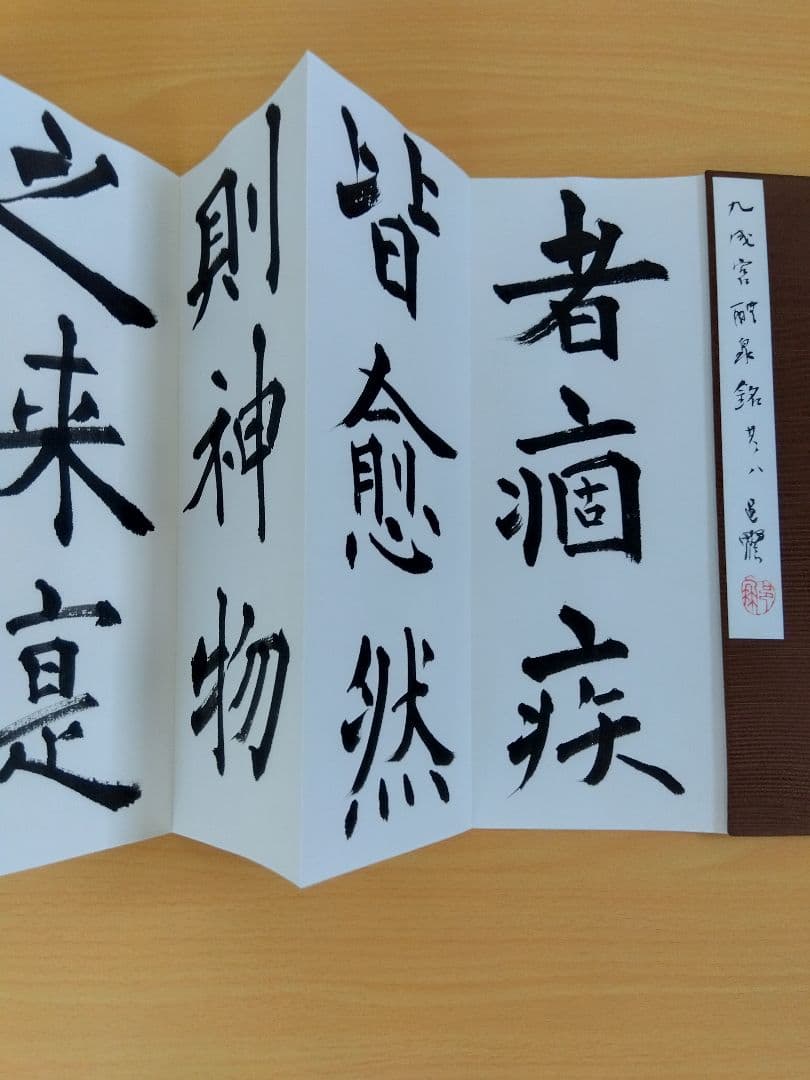 九成宮醴泉銘 其八 邑
者痼疾
皆愈然
則神物
之来寔